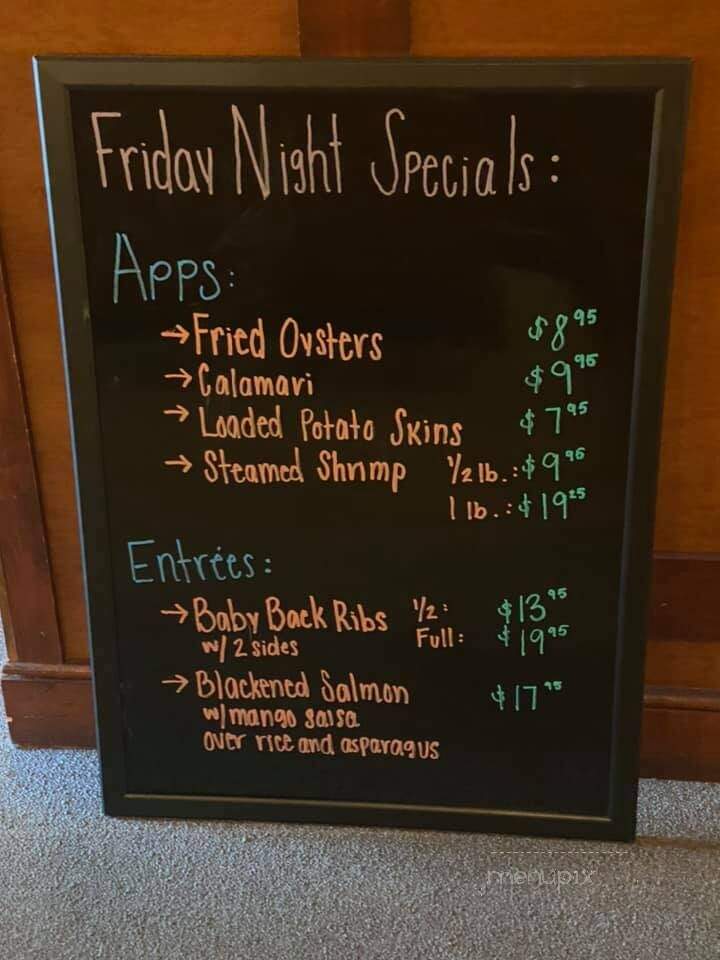 Friday Night Specials:
Apps:
→ Fried Oysters $8.95
→ Calamari $9.95
→ Loaded Potato Skins $7.95
→ Steamed Shrimp 1/2 lb.: $9.95
1 lb.: $19.25
Entrées:
→ Baby Back Ribs 1/2: $13.95
w/ 2 sides Full: $19.95
→ Blackened Salmon $17.95
w/ mango salsa
over rice and asparagus
menupix